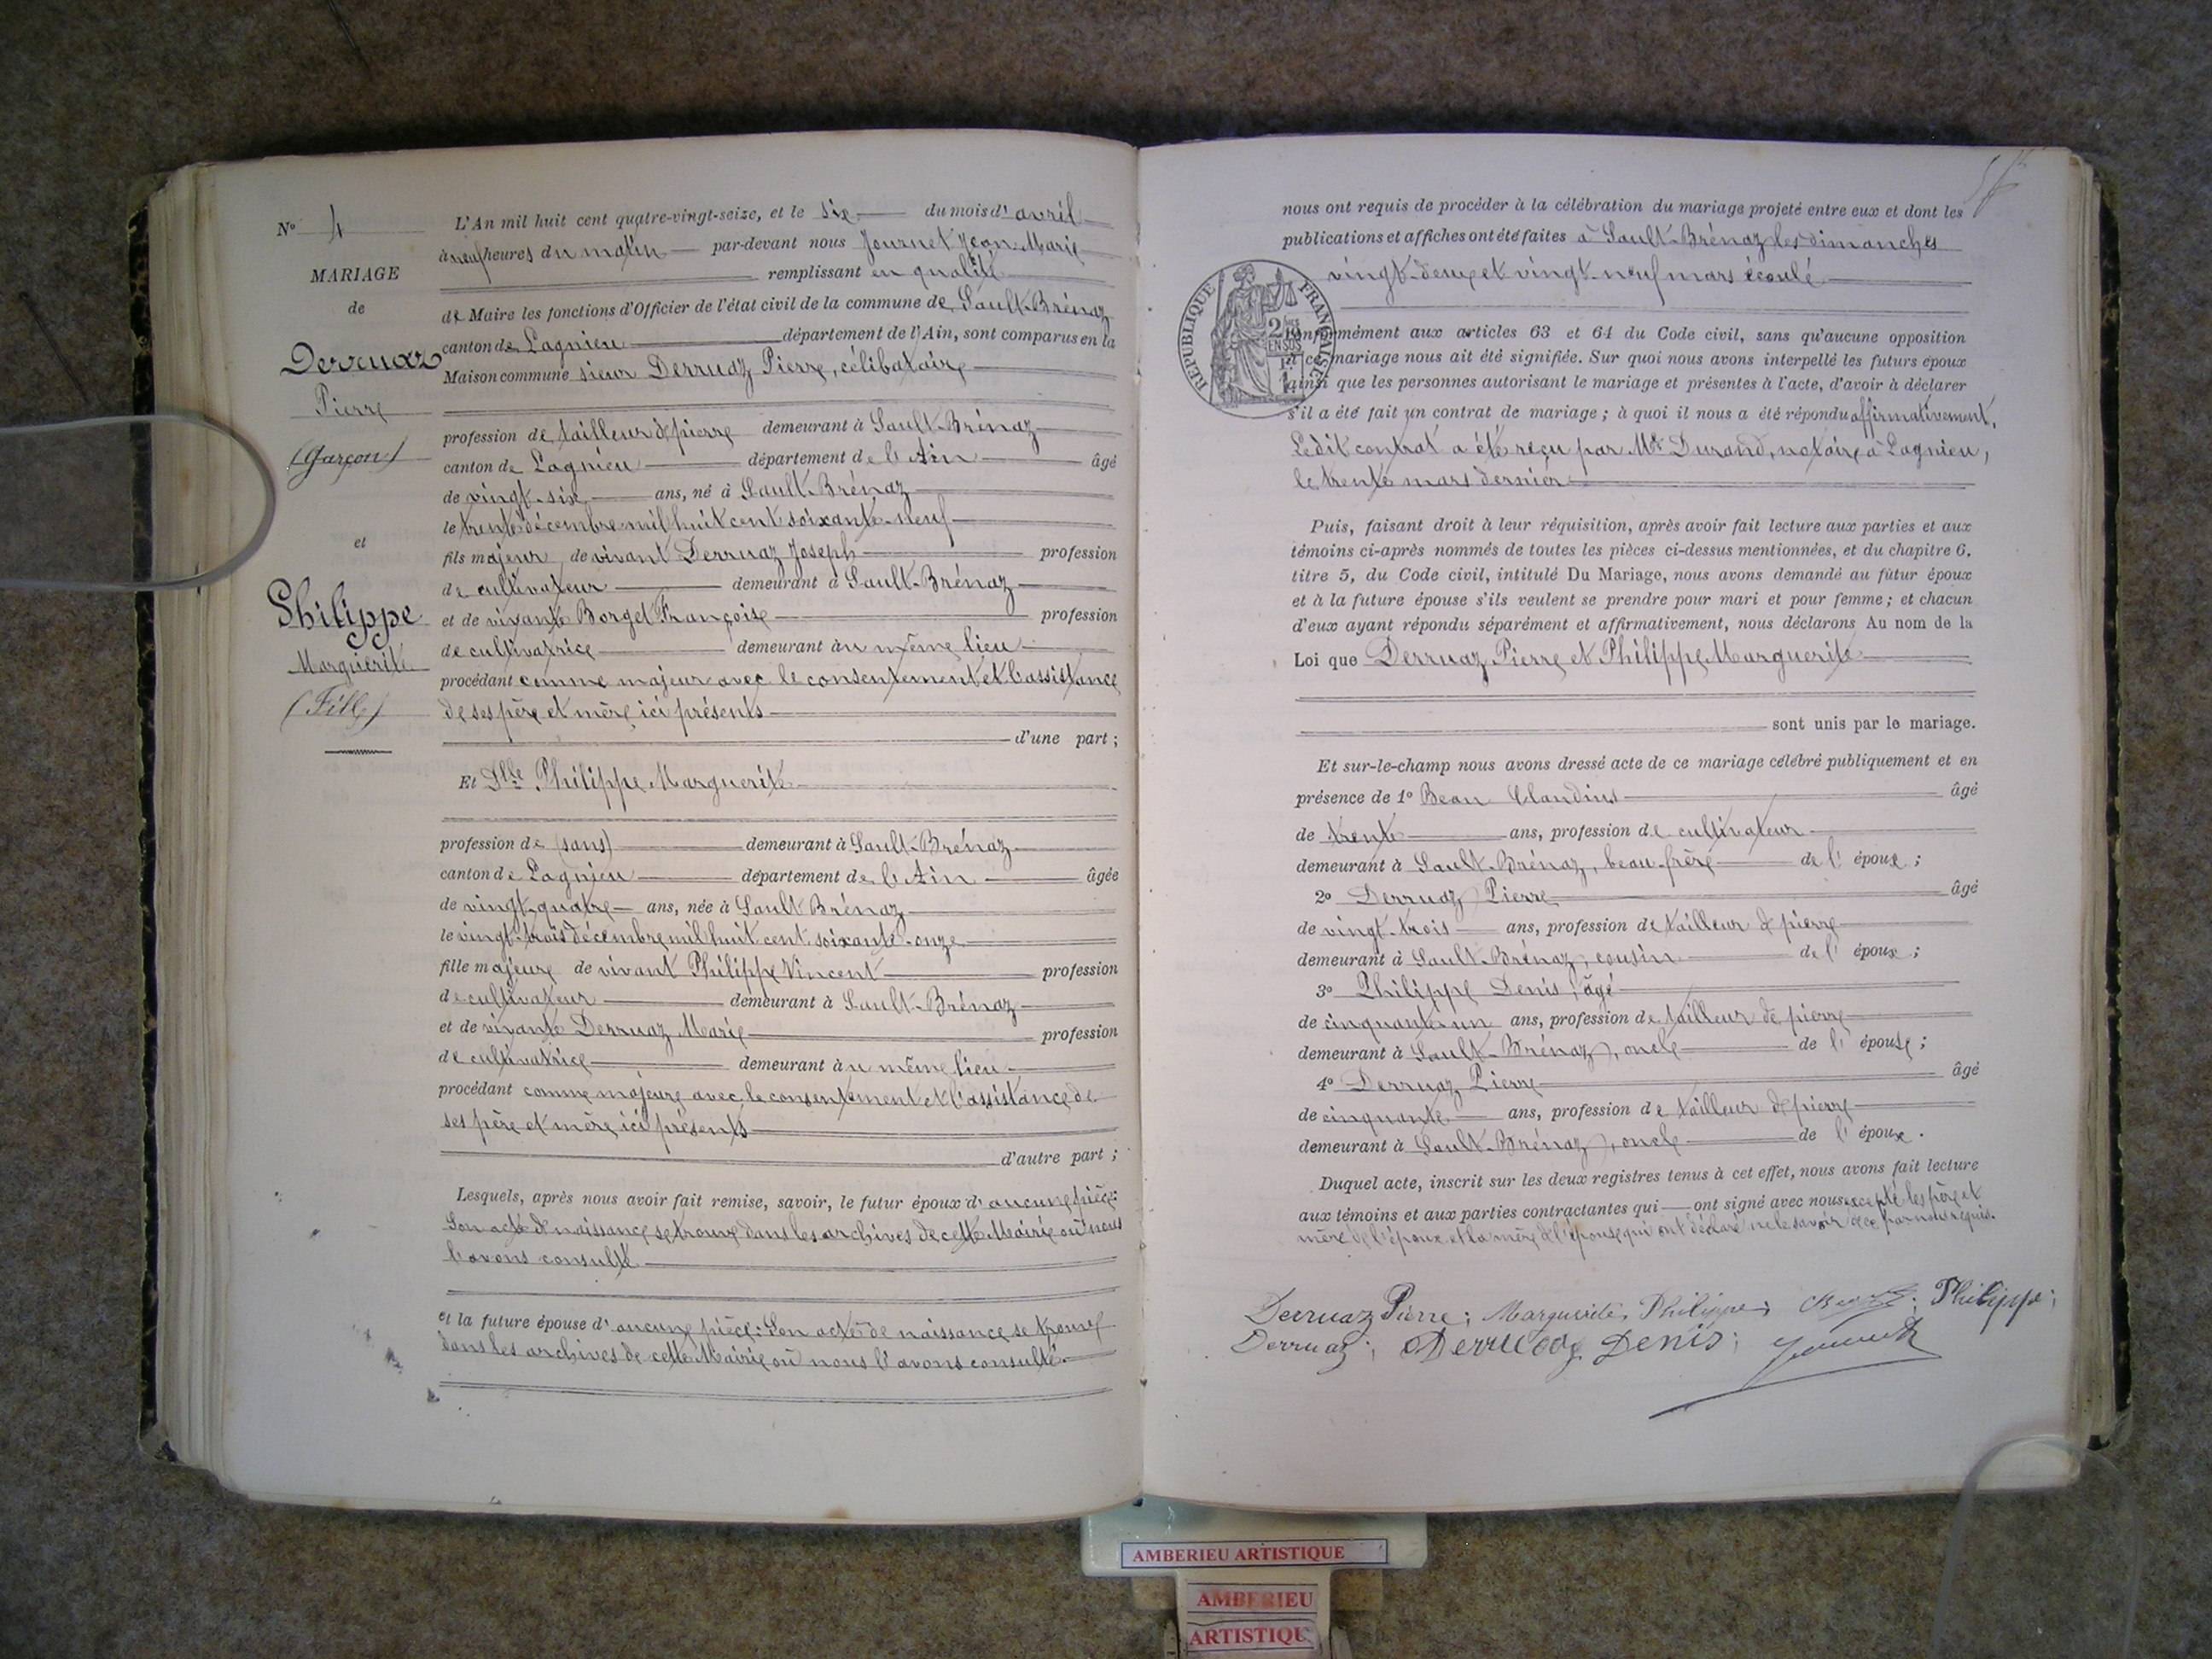 N° 4
MARIAGE
de
Derruaz
Pierre
(Garçon)
et
Philippe
Marguerite
(Fille)
L'An mil huit cent quatre-vingt-seize, et le six du mois d'avril
à neuf heures du matin par-devant nous Journet Jean-Marie
remplissant en qualité
de Maire les fonctions d'Officier de l'état civil de la commune de Sault-Brénaz
canton de Lagnieu département de l'Ain, sont comparus en la
Maison commune sieur Derruaz Pierre, célibataire
profession de tailleur de pierre demeurant à Sault-Brénaz
canton de Lagnieu département de l'Ain âgé
de vingt-six ans, né à Sault-Brénaz
le trente décembre mil huit cent soixante-neuf
fils majeur de vivant Derruaz Joseph profession
de cultivateur demeurant à Sault-Brénaz
et de vivante Borgel Françoise profession
de cultivatrice demeurant au même lieu
procédant comme majeur avec le consentement et l'assistance
de ses père et mère ici présents
d'une part ;
Et Dlle Philippe Marguerite
profession de (sans) demeurant à Sault-Brénaz
canton de Lagnieu département de l'Ain âgée
de vingt-quatre ans, née à Sault-Brénaz
le vingt-trois décembre mil huit cent soixante-onze
fille majeure de vivant Philippe Vincent profession
de cultivateur demeurant à Sault-Brénaz
et de vivante Derruaz Marie profession
de cultivatrice demeurant au même lieu
procédant comme majeure avec le consentement et l'assistance de
ses père et mère ici présents
d'autre part ;
Lesquels, après nous avoir fait remise, savoir, le futur époux d'aucune pièce:
Son acte de naissance se trouve dans les archives de cette Mairie où nous
l'avons consulté
et la future épouse d'aucune pièce: Son acte de naissance se trouve
dans les archives de cette Mairie où nous l'avons consulté.
nous ont requis de procéder à la célébration du mariage projeté entre eux et dont les
publications et affiches ont été faites à Sault-Brénaz les dimanches
vingt-deux et vingt-neuf mars écoulé
RÉPUBLIQUE FRANÇAISE
2/10 EN SUS
conformément aux articles 63 et 64 du Code civil, sans qu'aucune opposition
à ce mariage nous ait été signifiée. Sur quoi nous avons interpellé les futurs époux
ainsi que les personnes autorisant le mariage et présentes à l'acte, d'avoir à déclarer
s'il a été fait un contrat de mariage ; à quoi il nous a été répondu affirmativement.
Ledit contrat a été reçu par Me Durand, notaire à Lagnieu,
le trente mars dernier
Puis, faisant droit à leur réquisition, après avoir fait lecture aux parties et aux
témoins ci-après nommés de toutes les pièces ci-dessus mentionnées, et du chapitre 6.
titre 5, du Code civil, intitulé Du Mariage, nous avons demandé au futur époux
et à la future épouse s'ils veulent se prendre pour mari et pour femme ; et chacun
d'eux ayant répondu séparément et affirmativement, nous déclarons Au nom de la
Loi que Derruaz Pierre et Philippe Marguerite
sont unis par le mariage.
Et sur-le-champ nous avons dressé acte de ce mariage célébré publiquement et en
présence de 1° Beau Claudius âgé
de trente ans, profession de cultivateur
demeurant à Sault-Brénaz, beau-frère de l'époux ;
2° Derruaz Pierre âgé
de vingt-trois ans, profession de tailleur de pierre
demeurant à Sault-Brénaz, cousin de l'époux ;
3° Philippe Denis, âgé
de cinquante-un ans, profession de tailleur de pierre
demeurant à Sault-Brénaz, oncle de l'épouse ;
4° Derruaz Pierre âgé
de cinquante ans, profession de tailleur de pierre
demeurant à Sault-Brénaz, oncle de l'époux.
Duquel acte, inscrit sur les deux registres tenus à cet effet, nous avons fait lecture
aux témoins et aux parties contractantes qui ont signé avec nous excepté les père et
mère de l'époux et la mère de l'épouse qui ont déclaré ne le savoir de ce par nous requis.
Derruaz Pierre ; Marguerite Philippe ; Philippe ;
Derruaz ; Derruaz Denis ; Journet
AMBERIEU ARTISTIQUE
AMBERIEU
ARTISTIQU